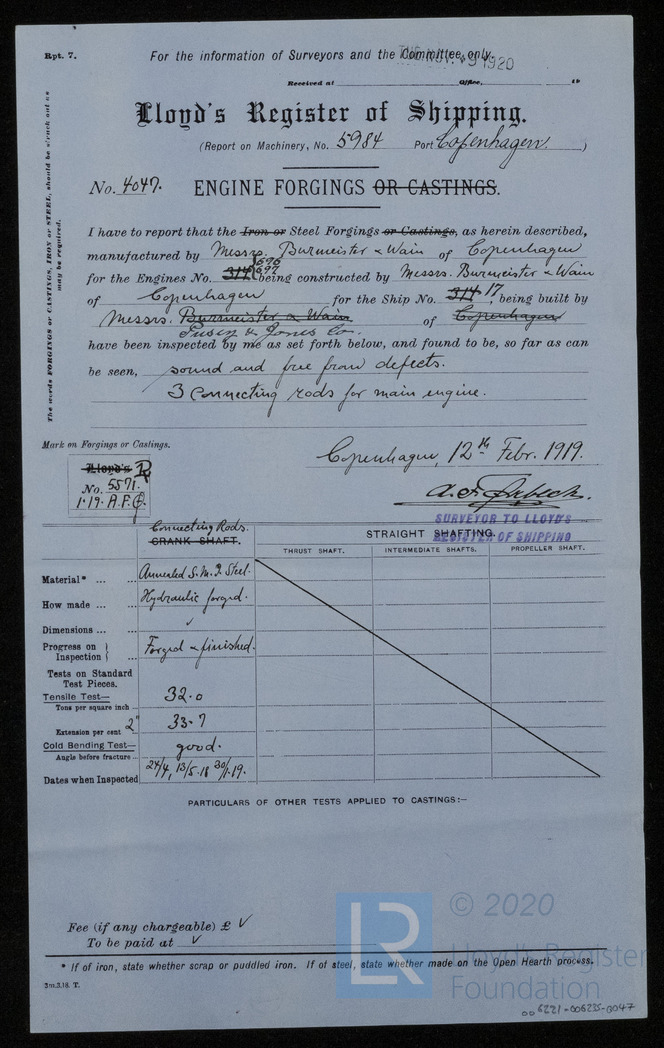 Rpt. 7.
For the information of Surveyors and the Committee only.
1920
Received at Office, 19
Lloyd's Register of Shipping.
(Report on Machinery, No. 5984 Port Copenhagen. )
No. 4047. ENGINE FORGINGS OR CASTINGS.
The words FORGINGS or CASTINGS, IRON or STEEL, should be struck out as
may be required.
I have to report that the Iron or Steel Forgings or Castings, as herein described,
manufactured by Messrs. Burmeister & Wain of Copenhagen
696
for the Engines No. 314 697 being constructed by Messrs. Burmeister & Wain
of Copenhagen for the Ship No. 314 17 being built by
Messrs. Burmeister & Wain of Copenhagen
Pusey & Jones Co.
have been inspected by me as set forth below, and found to be, so far as can
be seen, sound and free from defects.
3 Connecting rods for main engine.
Mark on Forgings or Castings.
Copenhagen, 12th Febr. 1919.
Lloyd's
No. 5571.
1·19. A.F.
SURVEYOR TO LLOYD'S
REGISTER OF SHIPPING
Connecting Rods.
CRANK SHAFT.
STRAIGHT SHAFTING.
THRUST SHAFT. INTERMEDIATE SHAFTS. PROPELLER SHAFT.
Material* ... ... Annealed S.M.I. Steel.
How made ... ... Hydraulic forged.
Dimensions ... ... ✓
Progress on }
Inspection } ... Forged & finished.
Tests on Standard
Test Pieces.
Tensile Test—
Tons per square inch ... 32.0
Extension per cent 2" 33.7
Cold Bending Test—
Angle before fracture ... good.
Dates when Inspected 24/4, 13/5.18 30/1.19.
PARTICULARS OF OTHER TESTS APPLIED TO CASTINGS:—
Fee (if any chargeable) £ ✓
To be paid at ✓
* If of iron, state whether scrap or puddled iron. If of steel, state whether made on the Open Hearth process.
2m.3.18. T.
LR
© 2020
Lloyd's Register
Foundation
006221-006235-0047